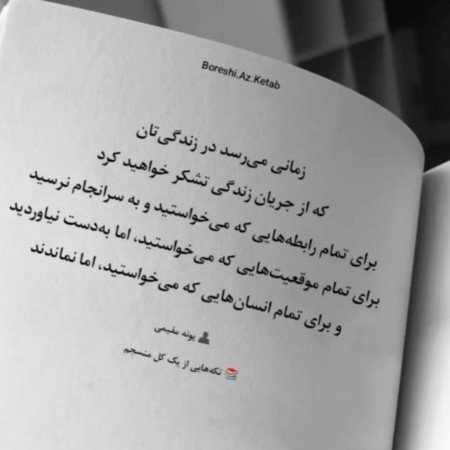 Boreshi.Az.Ketab
زمانی می‌رسد در زندگی‌تان
که از جریان زندگی تشکر خواهید کرد
برای تمام رابطه‌هایی که می‌خواستید و به سرانجام نرسید
برای تمام موقعیت‌هایی که می‌خواستید، اما به‌دست نیاوردید
و برای تمام انسان‌هایی که می‌خواستید، اما نماندند
پونه مقیمی
تکه‌هایی از یک کل منسجم